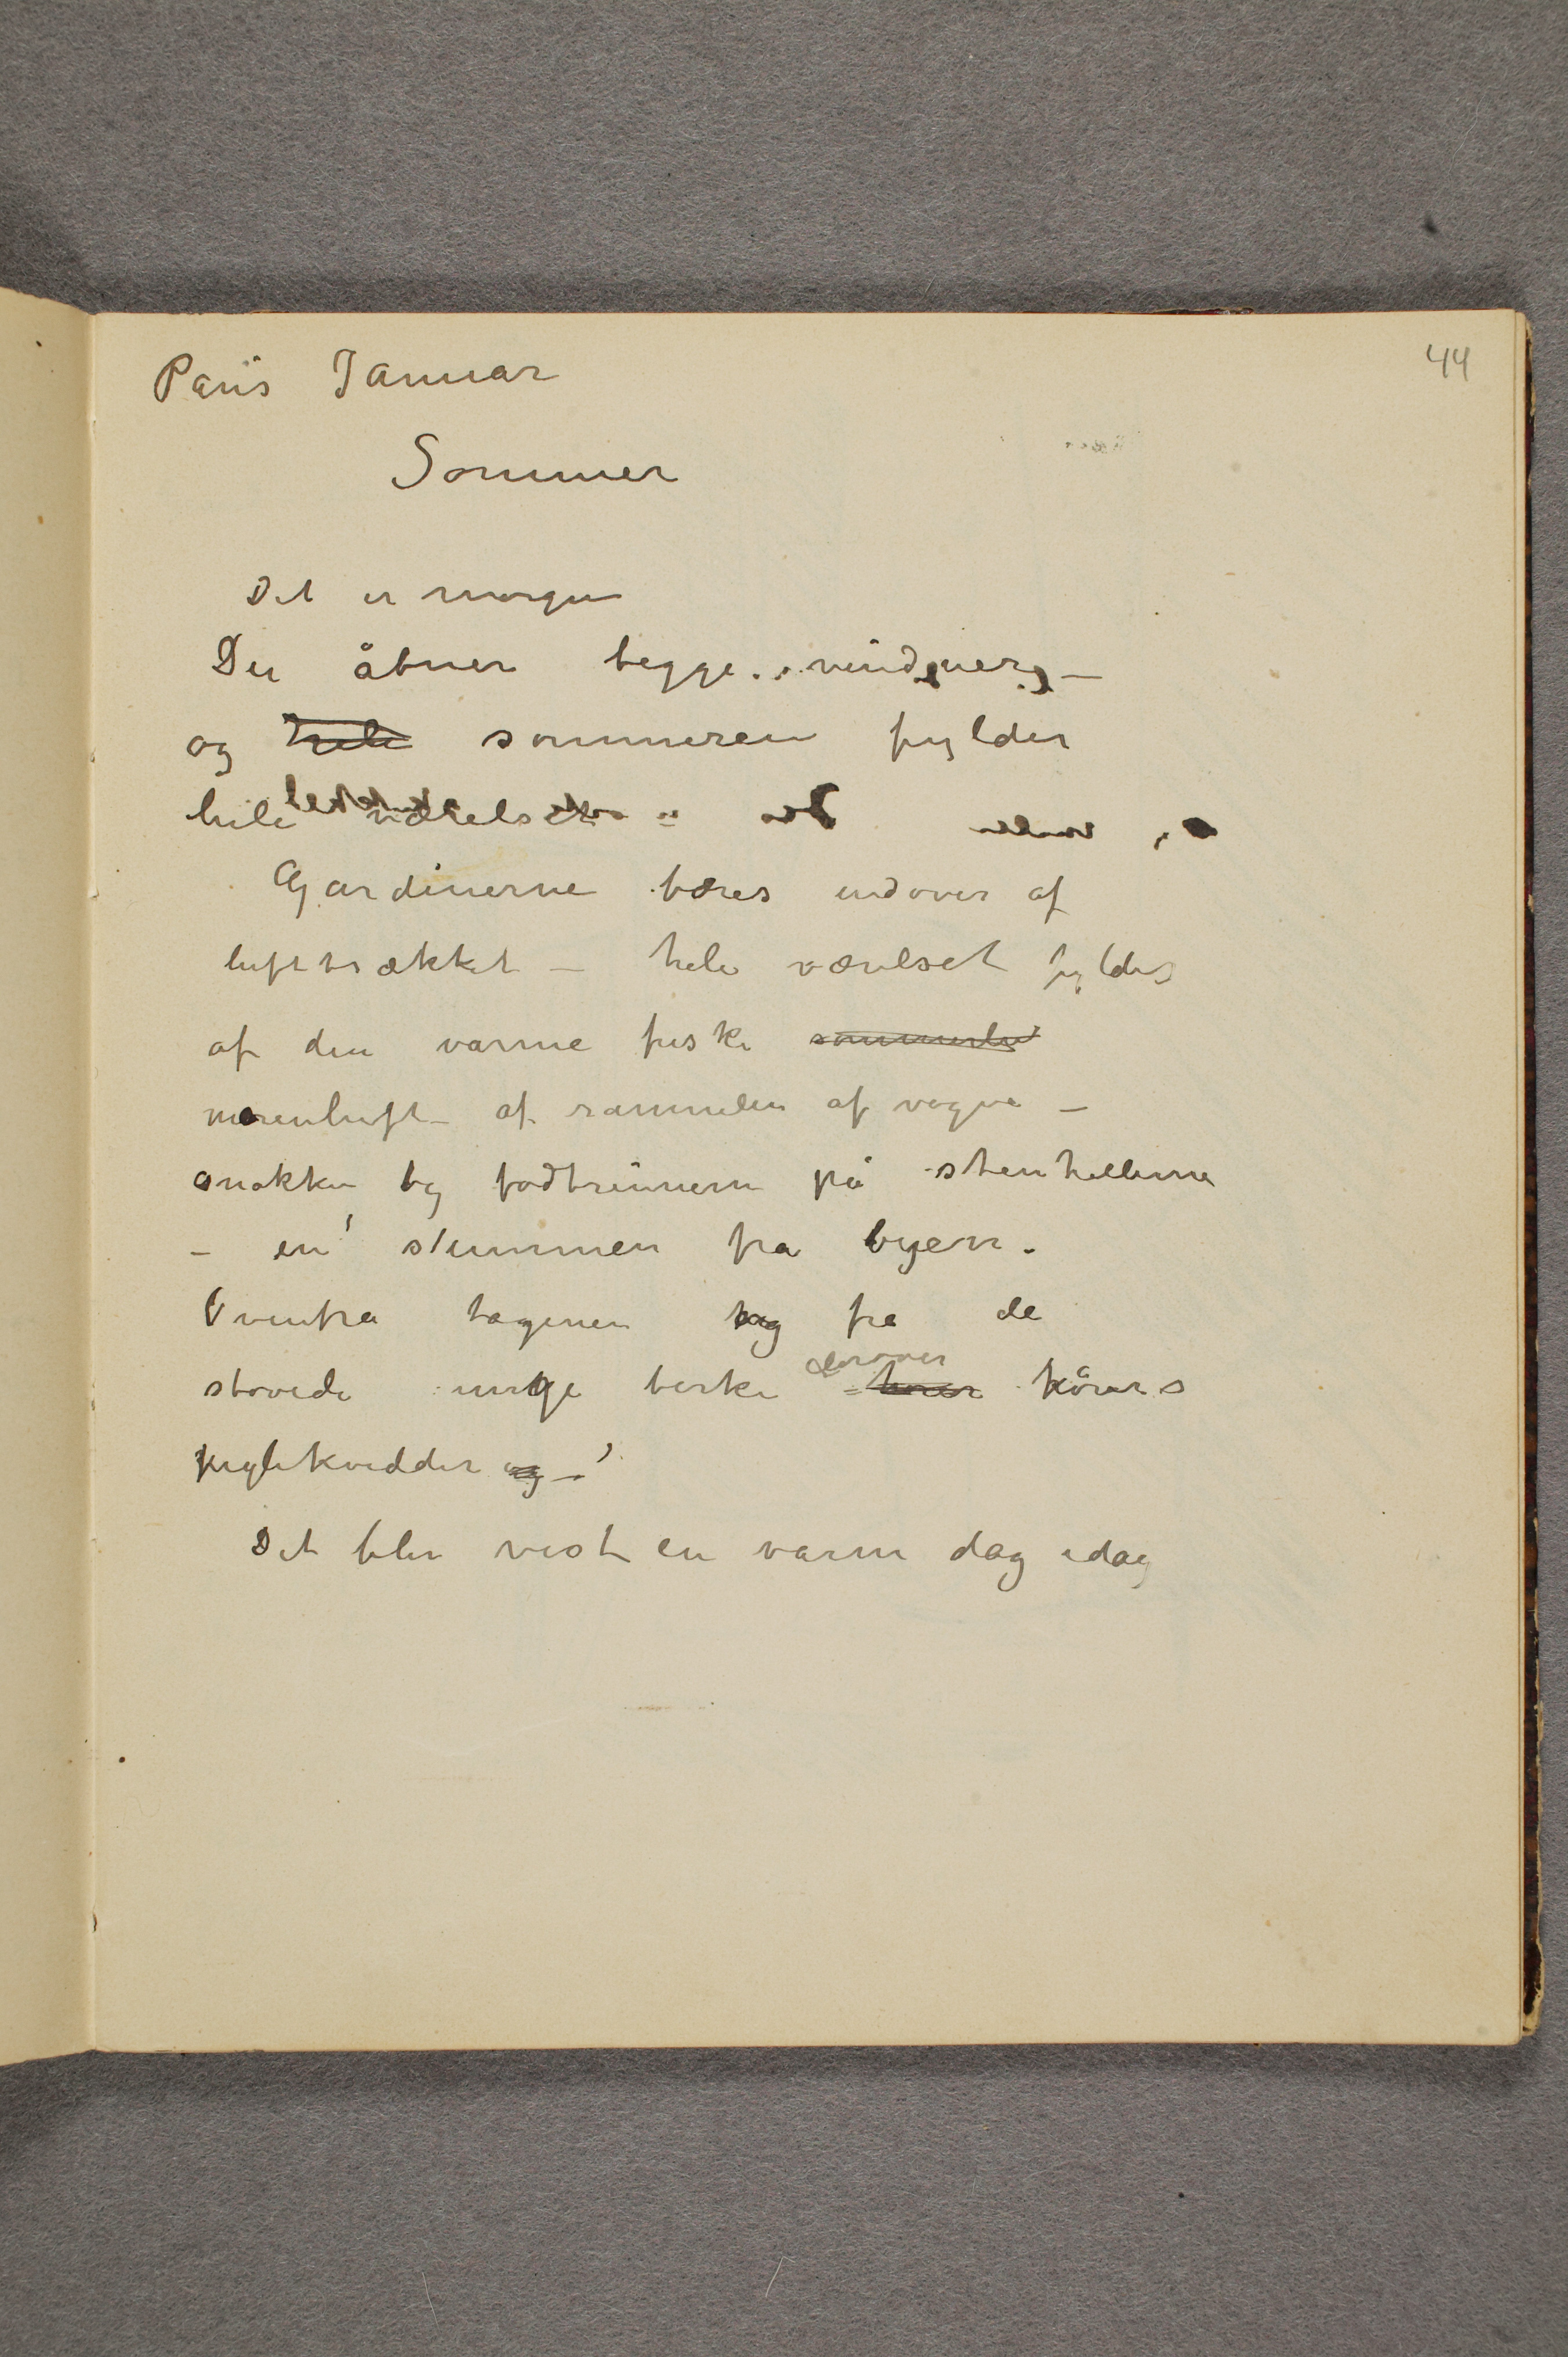 Paris Januar
44
Sommer
Det er morgen
Du åbner begge vinduer –
og hele sommeren fylder
hele værelset
Gardinerne bæres indover af
lufttrækket – hele værelset fyldes
af den varme friske sommerlu
morenluft – af rammelen af vogne –
snakken og fodtrinnene på stenhellerne
– en stummen fra byen.
Ovenfra tagenen og fra de
støvede unge birke derover hører höres
fuglekvidder og –
Det blir vist en varm dag idag